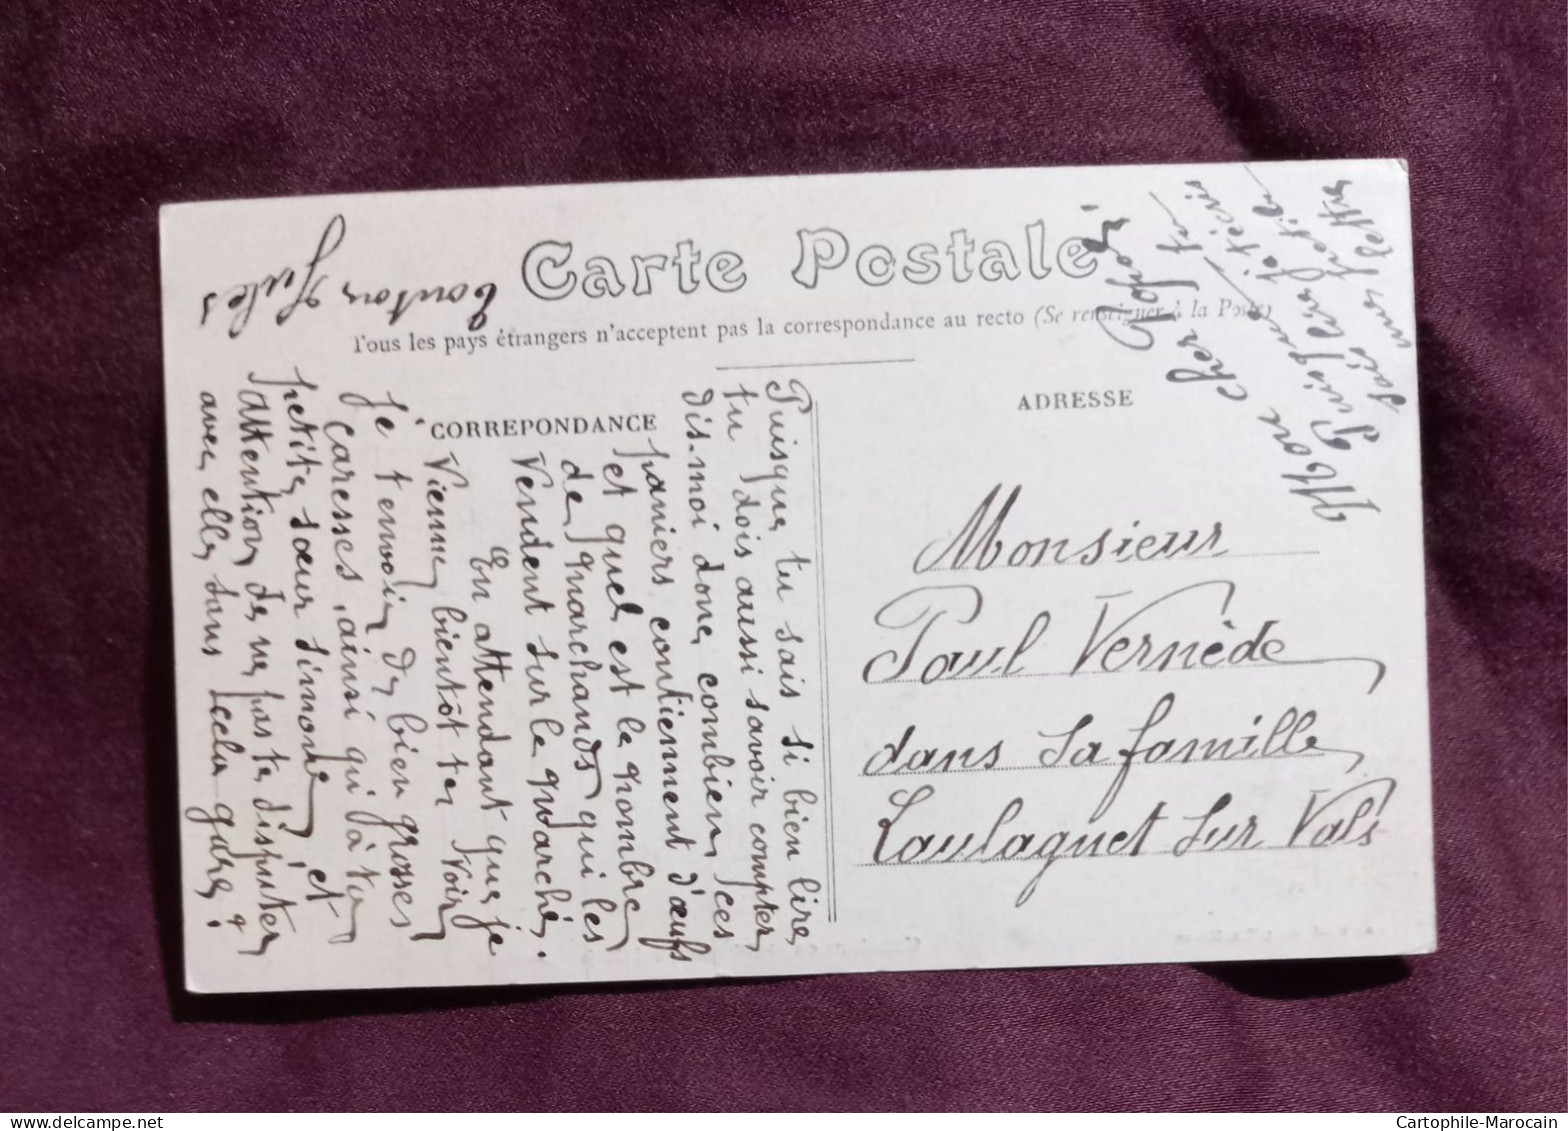 Carte Postale
Tous les pays étrangers n'acceptent pas la correspondance au recto (Se renseigner à la Poste)
CORREPONDANCE
ADRESSE
Mon cher
Puisque tu
sais lire je t'écris
une lettre
Puisque tu sais si bien lire,
tu dois aussi savoir compter,
dis-moi donc combien ces
paniers contiennent d'œufs
et quel est le nombre
de marchands qui les
vendent sur le marché.
En attendant que je
vienne bientôt te voir
je t'envoie de bien grosses
caresses, ainsi qu'à ta
petite sœur Simone, et
attention de ne pas te disputer
avec elle, sans cela gare !
tonton Jules
Monsieur
Paul Vernède
dans sa famille
Laulagnet sur Vals
Cartophile-Marocain